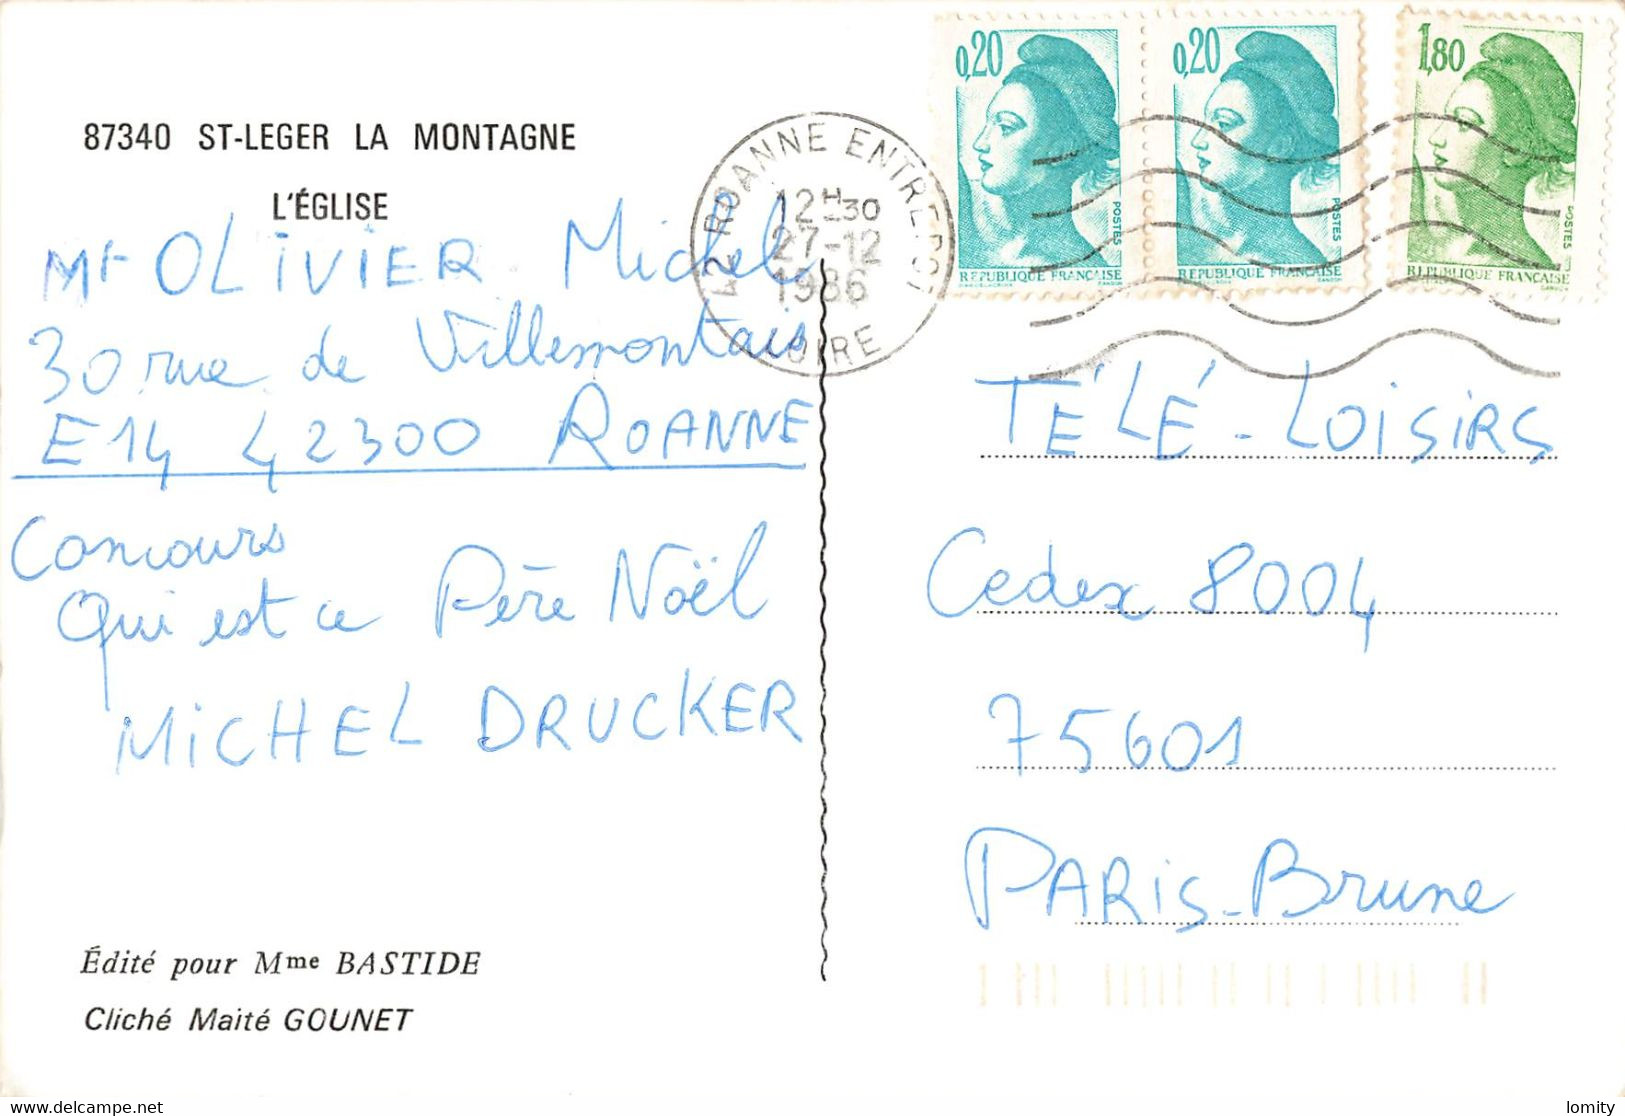 87340 ST-LEGER LA MONTAGNE
L'ÉGLISE
Mr OLIVIER Michel
30 rue de Villemontais
E14 42300 ROANNE
Concours
Qui est ce Père Noël
MICHEL DRUCKER
Édité pour Mme BASTIDE
Cliché Maité GOUNET
42 ROANNE ENTREPOT
12H30
27-12
1986
LOIRE
0,20
POSTES
REPUBLIQUE FRANÇAISE
0,20
POSTES
REPUBLIQUE FRANÇAISE
1,80
POSTES
REPUBLIQUE FRANÇAISE
TÉLÉ-LOISIRS
Cedex 8004
75601
PARIS-Brune
delcampe.net
lomity